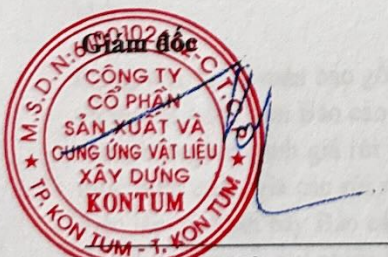 Giám đốc
M.S.D.N:
C.T.C.P
CÔNG TY
CỔ PHẦN
SẢN XUẤT VÀ
CUNG ỨNG VẬT LIỆU
XÂY DỰNG
KONTUM
TP. KON TUM - T. KON TUM